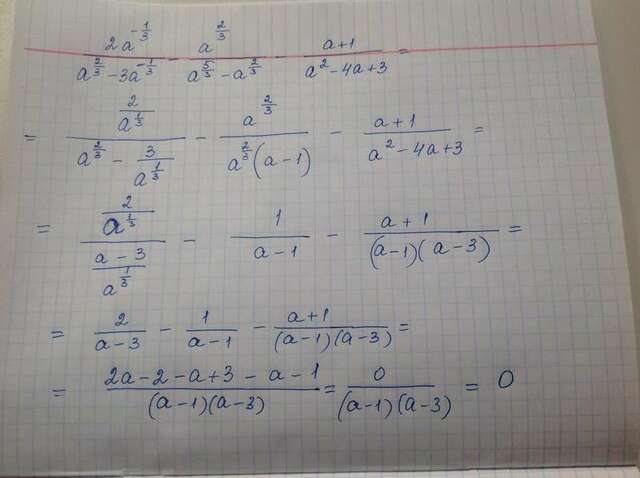 2a^{-1/3}/(a^{2/3} - 3a^{-1/3}) - a^{2/3}/(a^{5/3} - a^{2/3}) - (a+1)/(a^2 - 4a + 3) =
= (2/a^{1/3})/(a^{2/3} - 3/a^{1/3}) - a^{2/3}/(a^{2/3}(a-1)) - (a+1)/(a^2 - 4a + 3) =
= (2/a^{1/3})/((a-3)/a^{1/3}) - 1/(a-1) - (a+1)/((a-1)(a-3)) =
= 2/(a-3) - 1/(a-1) - (a+1)/((a-1)(a-3)) =
= (2a-2-a+3-a-1)/((a-1)(a-3)) = 0/((a-1)(a-3)) = 0